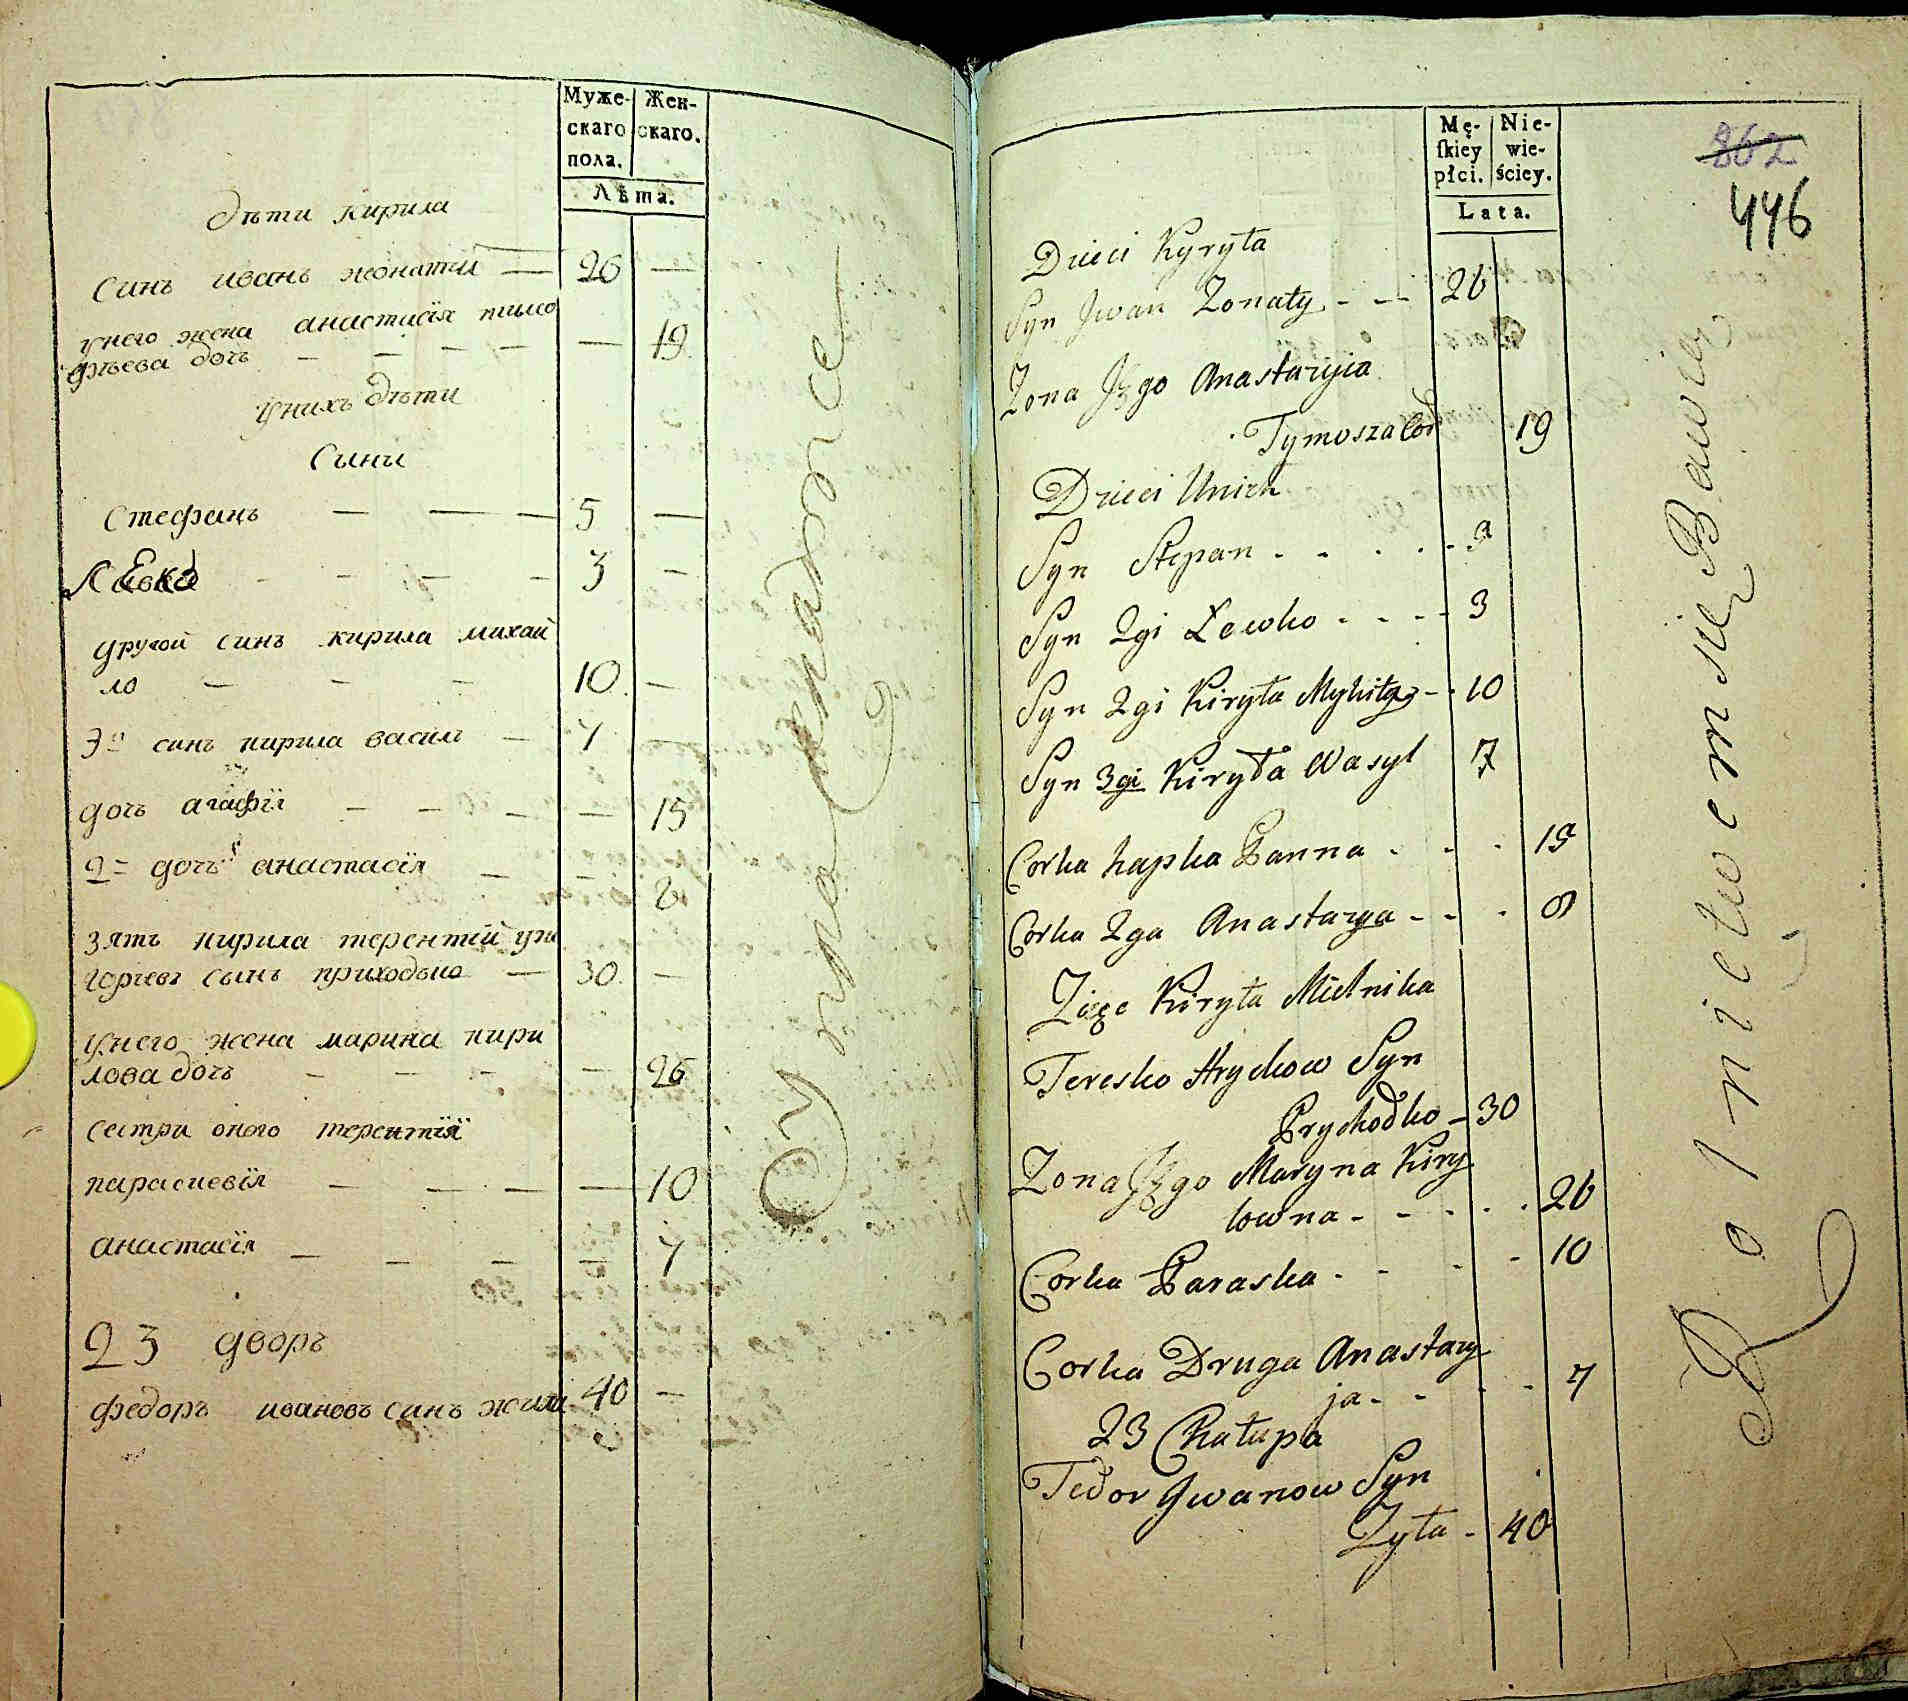 Муже- Жен-
скаго скаго.
пола.
Лѣта.
дѣти кирила
синъ иванъ жонатий — 26 —
унего жена анастасія тимо
фѣева дочъ — — — — 19
унихъ дѣти
Сыни
Стефанъ — — — 5 —
Левко - - - - 3 -
другой синъ кирила михай
ло — — — 10 —
3й синъ кирила василь — 7 —
дочъ агафія — — — — 15
2= дочъ анастасія — — 8
зять кирила терентій гри
горіевъ сынъ приходько — 30 —
унего жена марина кири
лова дочъ — — — — 26
сестри оного терентія
параскевія — — — — 10
анастасія — — — — 7
23 дворъ
федоръ ивановъ синъ жила 40 —
Mę- Nie-
skiey wie-
płci. ściey.
Lata.
862
446
Dzieci Kyryła
Syn Jwan Zonaty - - 26
Zona Jego Anastazyia
Tymosza Cor 19
Dzieci Unich
Syn Stepan - - - - 5
Syn 2gi Lewko - - - - 3
Syn 2gi Kiryła Mykita - 10
Syn 3gi Kiryła Wasyl 7
Corka hapka Panna - - - 15
Corka 2ga Anastazya - - - 8
Zięc Kiryła Mielnika
Teresko Hryckow Syn
Prychodko - 30
Zona Jego Maryna Kiry
lowna - - - - - 26
Corka Paraska - - - - 10
Corka Druga Anastazy
ja - - - - 7
23 Chałupa
Tedor Jwanow Syn
Zyła - 40
Rolnictwem się Bawią